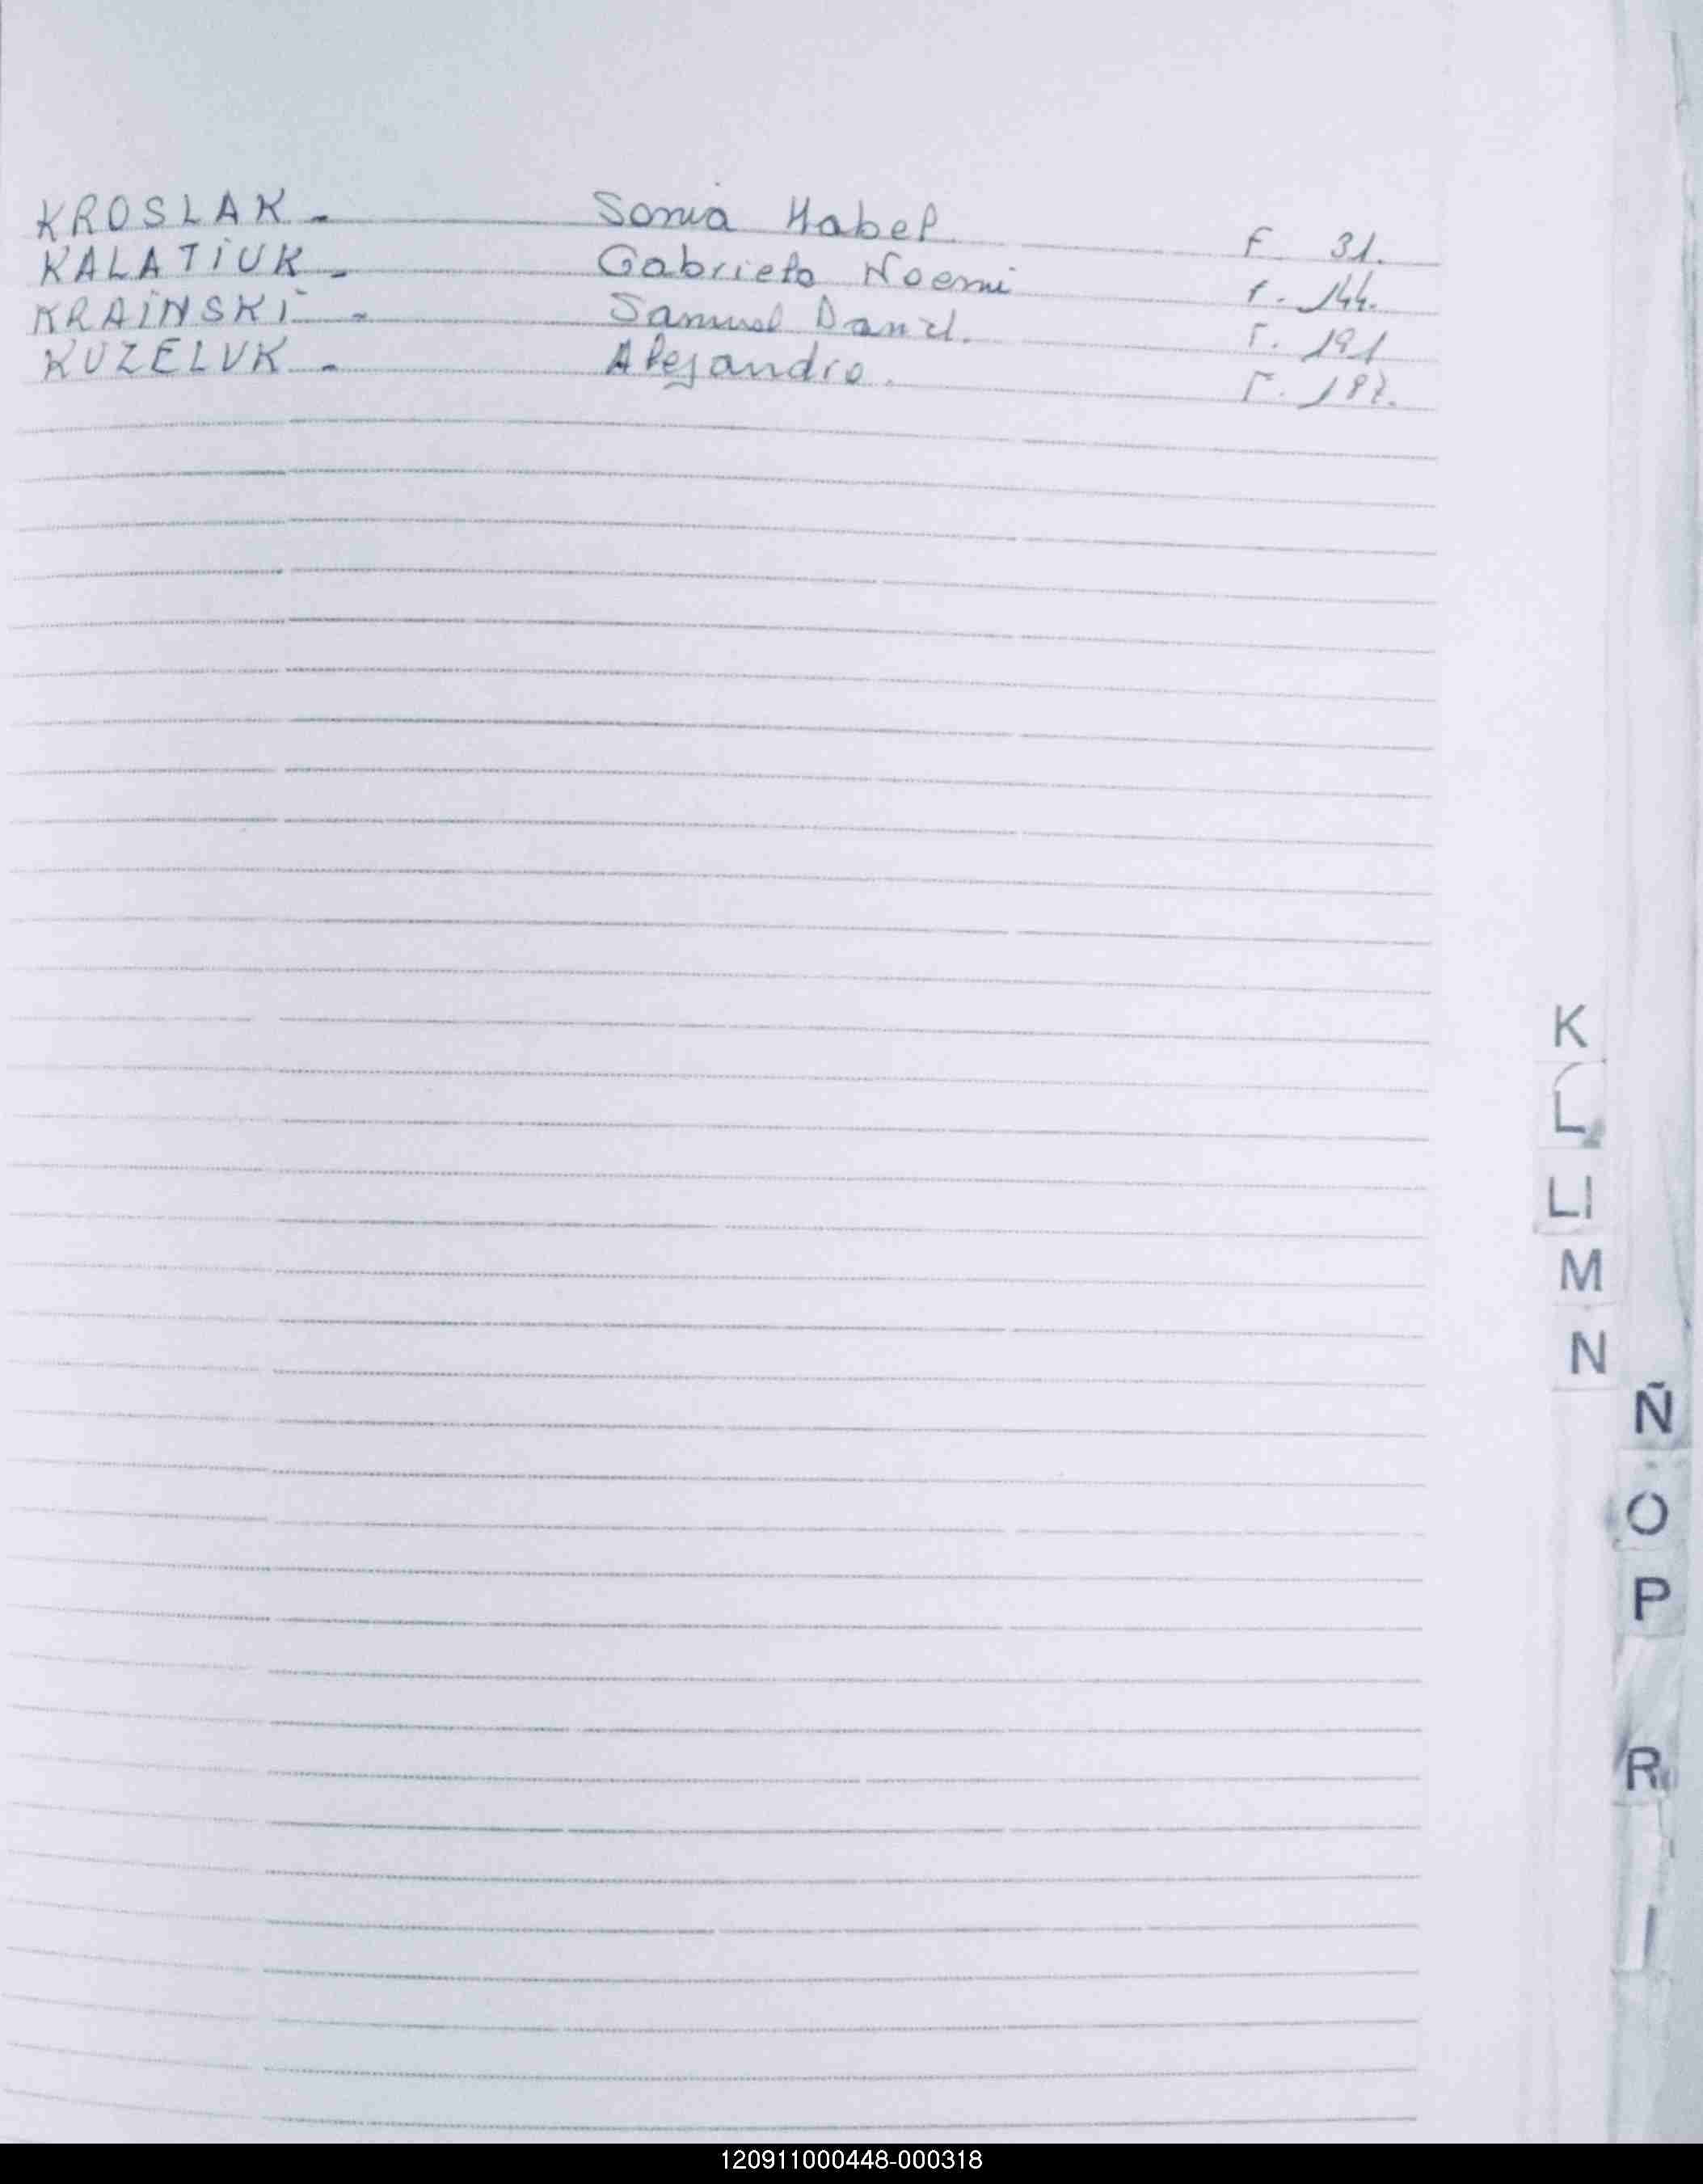 KROSLAK - Sonia Mabel F. 31.
KALATIUK - Gabriela Noemi F. 144.
KRAINSKI - Samuel Daniel. F. 191
KUZELUK - Alejandro. F.
K
L
Ll
M
N
Ñ
O
P
R
120911000448-000318